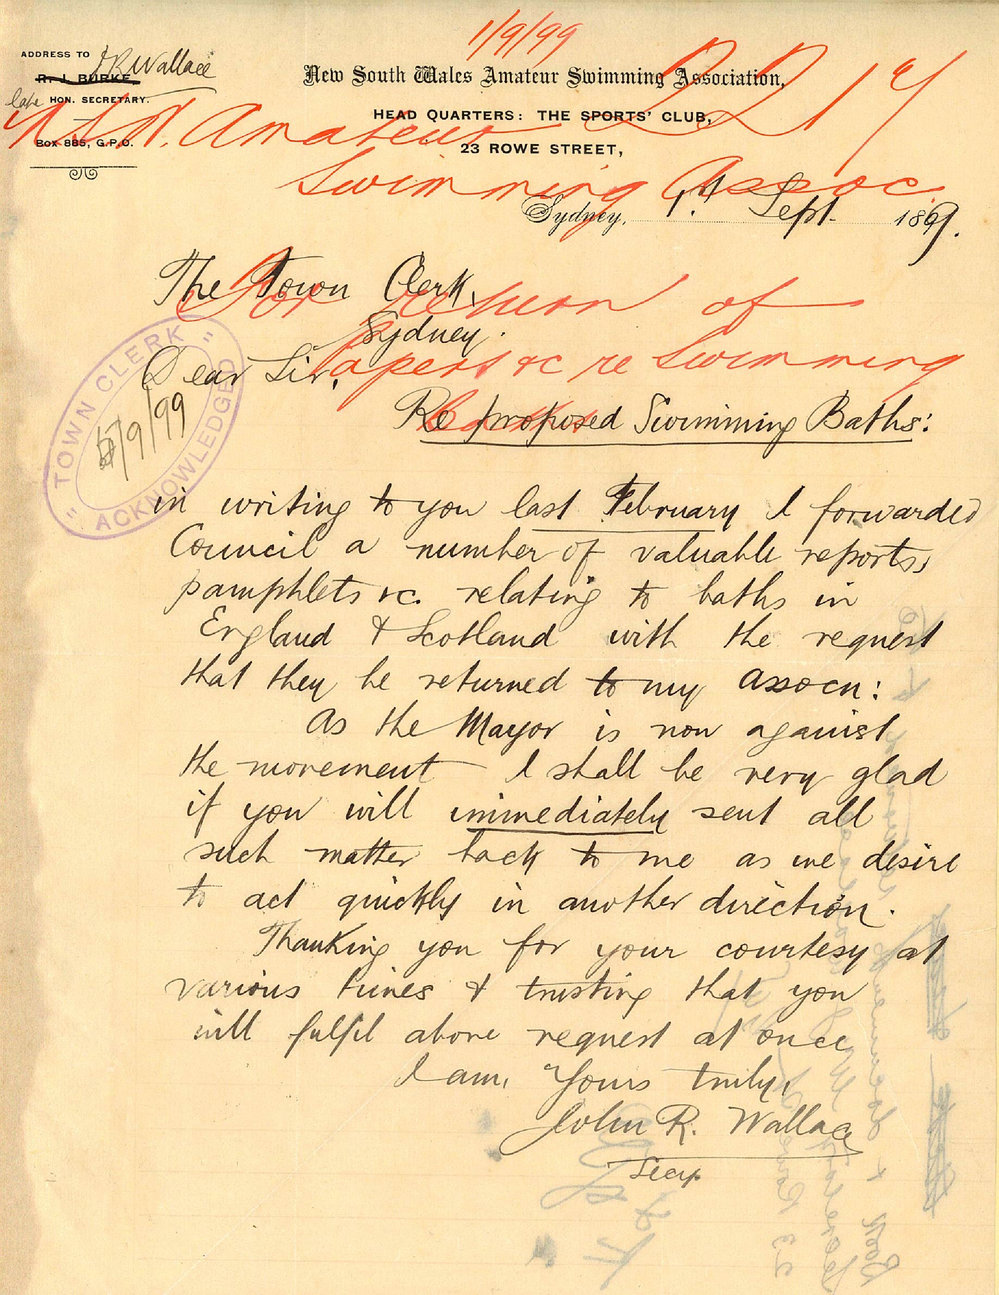 1/9/99
ADDRESS TO
J R Wallace
R. J. BURKE
late HON. SECRETARY.
BOX 885, G.P.O.
New South Wales Amateur Swimming Association,
HEAD QUARTERS: THE SPORTS' CLUB,
23 ROWE STREET,
N.S.W. Amateur
Swimming Assoc.
Sydney, 1st Sept. 1899.
The Town Clerk,
Sydney.
For return of
papers &c re Swimming
Baths
Dear Sir,
TOWN CLERK
1/9/99
ACKNOWLEDGED
Re proposed Swimming Baths:
in writing to you last February I forwarded
Council a number of valuable reports,
pamphlets &c. relating to baths in
England & Scotland with the request
that they be returned to my Assocn:
As the Mayor is now against
the movement I shall be very glad
if you will immediately sent all
such matter back to me as we desire
to act quickly in another direction.
Thanking you for your courtesy at
various times & trusting that you
will fulfil above request at once
I am, Yours truly,
John R. Wallace
Secy